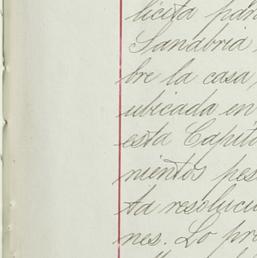 licita para
Sanabria
bre la casa,
ubicada en
esta Capita
nientos pes
ta resoluci
nes. Lo pro